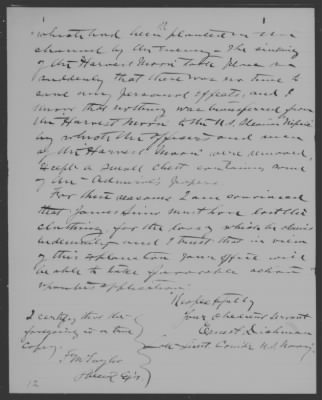 which had been planted in the
channel by the Enemy. The sinking
of the Harvest Moon took place so
suddenly that there was no time to
save any personal effects, and I
know that nothing was transferred from
the Harvest Moon to the U.S. Steamer
by which the officers and men
of the Harvest Moon were removed,
except a small chest containing some
of the Admiral's papers.
For these reasons I am convinced
that James must have lost the
clothing for the loss of which he claims
indemnity and I trust that in view
of this explanation your office will
be able to take favorable action
upon his application.
Respectfully
Your obedient servant
Ernest Dichman
Lieut Comdr U.S. Navy.
I certify that the
foregoing is a true
copy.
F.M. Taylor
12